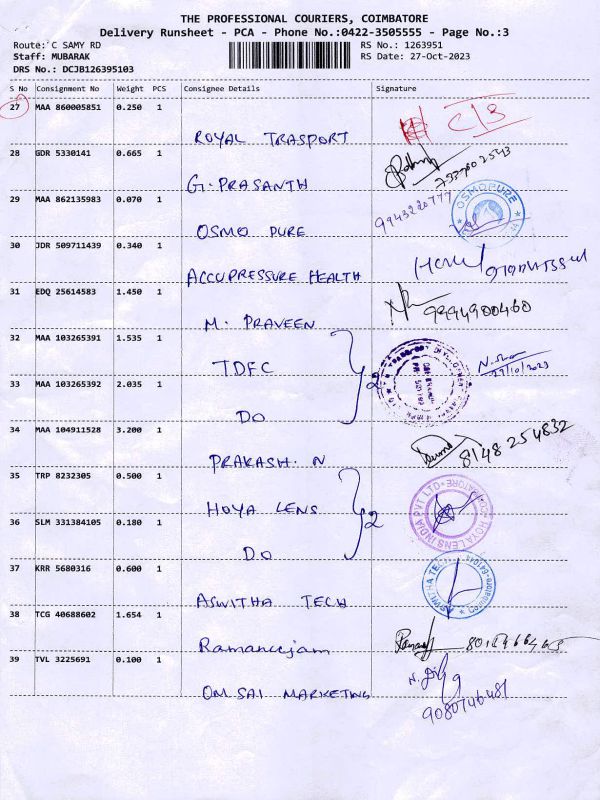 THE PROFESSIONAL COURIERS, COIMBATORE
Delivery Runsheet - PCA - Phone No.:0422-3505555 - Page No.:3
Route: C SAMY RD
RS No.: 1263951
Staff: MUBARAK
RS Date: 27-Oct-2023
DRS No.: DCJB126395103
S No Consignment No Weight PCS Consignee Details Signature
27 MAA 860005851 0.250 1
ROYAL TRASPORT
28 GDR 5330141 0.665 1
G. PRASANTH
29 MAA 862135983 0.070 1
9943220777
OSMOPURE
OSMO PURE
30 JDR 509711439 0.340 1
ACCUPRESSURE HEALTH
31 EDQ 25614583 1.450 1
9994900460
M. PRAVEEN
32 MAA 103265391 1.535 1
TDFC
2
33 MAA 103265392 2.035 1
DO
34 MAA 104911528 3.200 1
8148 254832
PRAKASH. N
35 TRP 8232305 0.500 1
HOYA LENS
2
HOYA LENS INDIA PVT LTD
36 SLM 331384105 0.180 1
DO
37 KRR 5680316 0.600 1
ASWITHA TECH
38 TCG 40688602 1.654 1
Ramanujam
39 TVL 3225691 0.100 1
OM SAI MARKETING
9080746481